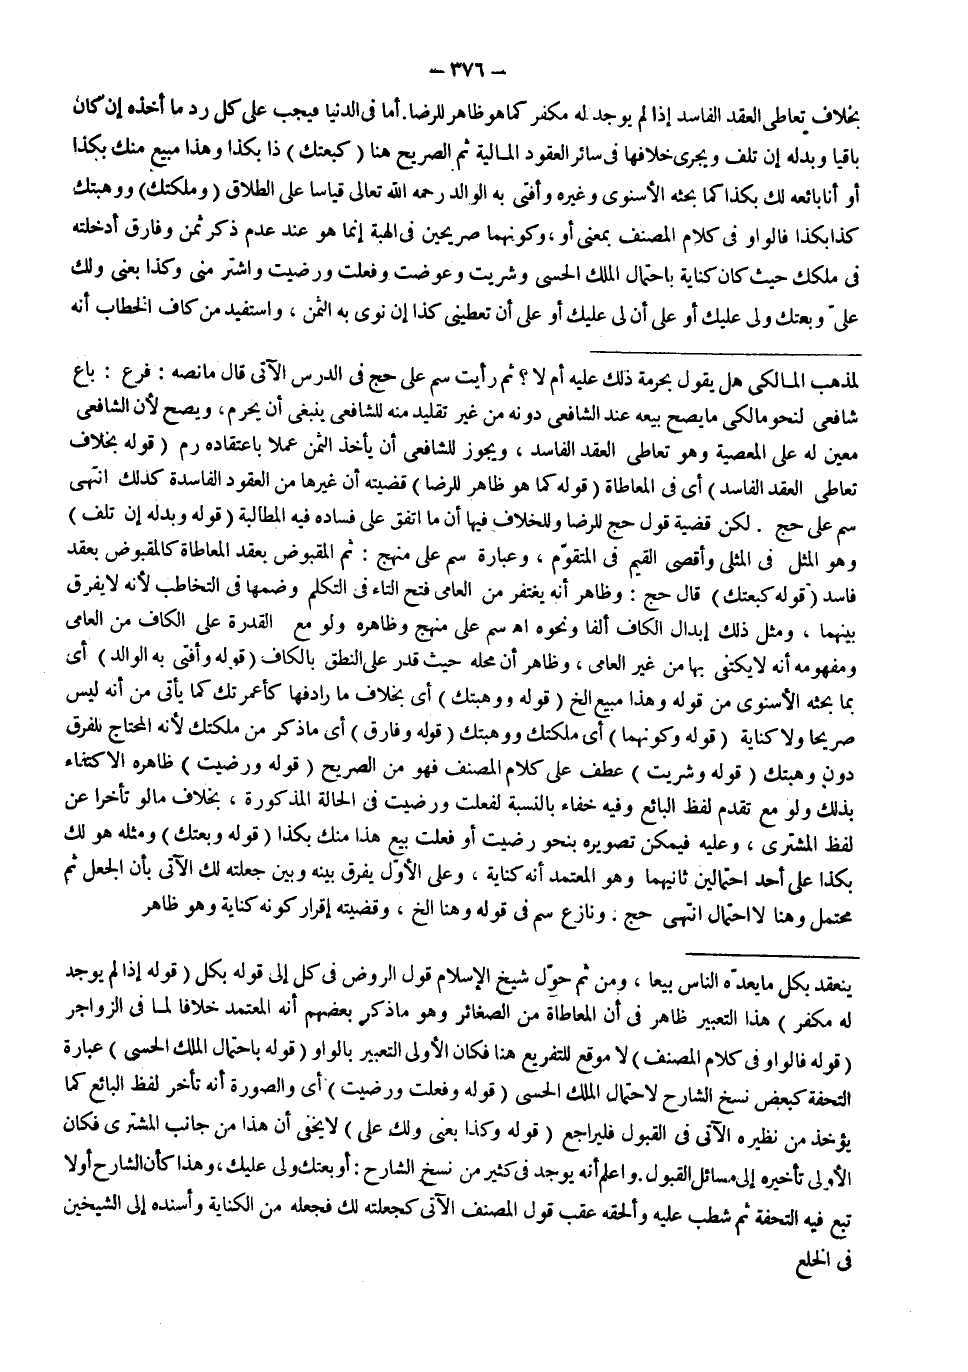 – ٣٧٦ –
بخلاف تعاطى العقد الفاسد إذا لم يوجد له مكفر كما هو ظاهر للرضا. أما فى الدنيا فيجب على كل رد ما أخذه إن كان
باقيا وبدله إن تلف ويجرى خلافها فى سائر العقود المالية ثم الصريح هنا ( كبعتك ) ذا بكذا وهذا مبيع منك بكذا
أو أنا بائعه لك بكذا كما بحثه الأسنوى وغيره وأفتى به الوالد رحمه الله تعالى قياسا على الطلاق ( وملكتك ) ووهبتك
كذا بكذا فالواو فى كلام المصنف بمعنى أو ، وكونهما صريحين فى الهبة إنما هو عند عدم ذكر ثمن وفارق أدخلته
فى ملكك حيث كان كناية باحتمال الملك الحسى وشريت وعوضت وفعلت ورضيت واشتر منى وكذا بعنى ولك
علىّ وبعتك ولى عليك أو على أن لى عليك أو على أن تعطينى كذا إن نوى به الثمن ، واستفيد من كاف الخطاب أنه
لمذهب المالكى هل يقول بحرمة ذلك عليه أم لا ؟ ثم رأيت سم على حج فى الدرس الآتى قال مانصه : فرع : باع
شافعى لنحو مالكى مايصح بيعه عند الشافعى دونه من غير تقليد منه للشافعى ينبغى أن يحرم ، ويصح لأن الشافعى
معين له على المعصية وهو تعاطى العقد الفاسد ، ويجوز للشافعى أن يأخذ الثمن عملا باعتقاده رم ( قوله بخلاف
تعاطى العقد الفاسد ) أى فى المعاطاة ( قوله كما هو ظاهر للرضا ) قضيته أن غيرها من العقود الفاسدة كذلك انتهى
سم على حج . لكن قضية قول حج للرضا وللخلاف فيها أن ما اتفق على فساده فيه المطالبة ( قوله وبدله إن تلف )
وهو المثل فى المثلى وأقصى القيم فى المتقوّم ، وعبارة سم على منهج : ثم المقبوض بعقد المعاطاة كالمقبوض بعقد
فاسد ( قوله كبعتك ) قال حج : وظاهر أنه يغتفر من العامى فتح التاء فى التكلم وضمها فى التخاطب لأنه لايفرق
بينهما ، ومثل ذلك إبدال الكاف ألفا ونحوه اه سم على منهج وظاهره ولو مع القدرة على الكاف من العامى
ومفهومه أنه لايكتفى بها من غير العامى ، وظاهر أن محله حيث قدر على النطق بالكاف ( قوله وأفتى به الوالد ) أى
بما بحثه الأسنوى من قوله وهذا مبيع الخ ( قوله ووهبتك ) أى بخلاف ما رادفها كأعمرتك كما يأتى من أنه ليس
صريحا ولا كناية ( قوله وكونهما ) أى ملكتك ووهبتك ( قوله وفارق ) أى ماذكر من ملكتك لأنه المحتاج للفرق
دون وهبتك ( قوله وشريت ) عطف على كلام المصنف فهو من الصريح ( قوله ورضيت ) ظاهره الاكتفاء
بذلك ولو مع تقدم لفظ البائع وفيه خفاء بالنسبة لفعلت ورضيت فى الحالة المذكورة ، بخلاف مالو تأخرا عن
لفظ المشترى ، وعليه فيمكن تصويره بنحو رضيت أو فعلت بيع هذا منك بكذا ( قوله وبعتك ) ومثله هو لك
بكذا على أحد احتمالين ثانيهما وهو المعتمد أنه كناية ، وعلى الأوّل يفرق بينه وبين جعلته لك الآتى بأن الجعل ثم
محتمل وهنا لا احتمال انتهى حج . ونازع سم فى قوله وهنا الخ ، وقضيته إقرار كونه كناية وهو ظاهر
ينعقد بكل مايعدّه الناس بيعا ، ومن ثم حوّل شيخ الإسلام قول الروض فى كل إلى قوله بكل ( قوله إذا لم يوجد
له مكفر ) هذا التعبير ظاهر فى أن المعاطاة من الصغائر وهو ماذكر بعضهم أنه المعتمد خلافا لما فى الزواجر
( قوله فالواو فى كلام المصنف ) لا موقع للتفريع هنا فكان الأولى التعبير بالواو ( قوله باحتمال الملك الحسى ) عبارة
التحفة كبعض نسخ الشارح لاحتمال الملك الحسى ( قوله وفعلت ورضيت ) أى والصورة أنه تأخر لفظ البائع كما
يؤخذ من نظيره الآتى فى القبول فليراجع ( قوله وكذا بعنى ولك على ) لايخفى أن هذا من جانب المشترى فكان
الأولى تأخيره إلى مسائل القبول . واعلم أنه يوجد فى كثير من نسخ الشارح : أو بعتك ولى عليك ، وهذا كأن الشارح أولا
تبع فيه التحفة ثم شطب عليه وألحقه عقب قول المصنف الآتى كجعلته لك فجعله من الكناية وأسنده إلى الشيخين
فى الخلع